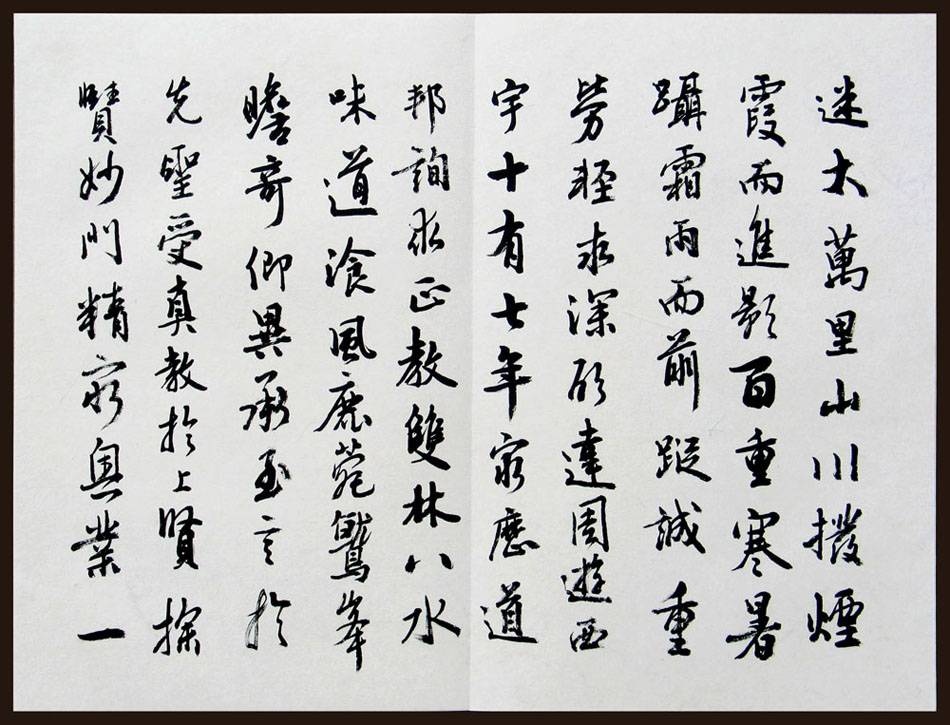 迷天萬里山川撥煙
霞而進影百重寒暑
躡霜雨而前蹤誠重
勞輕求深願達周遊西
宇十有七年窮歷道
邦詢求正教雙林八水
味道湌風鹿菀鷲峯
瞻奇仰異承至言於
先聖受真教於上賢探
賾妙門精窮奧業一